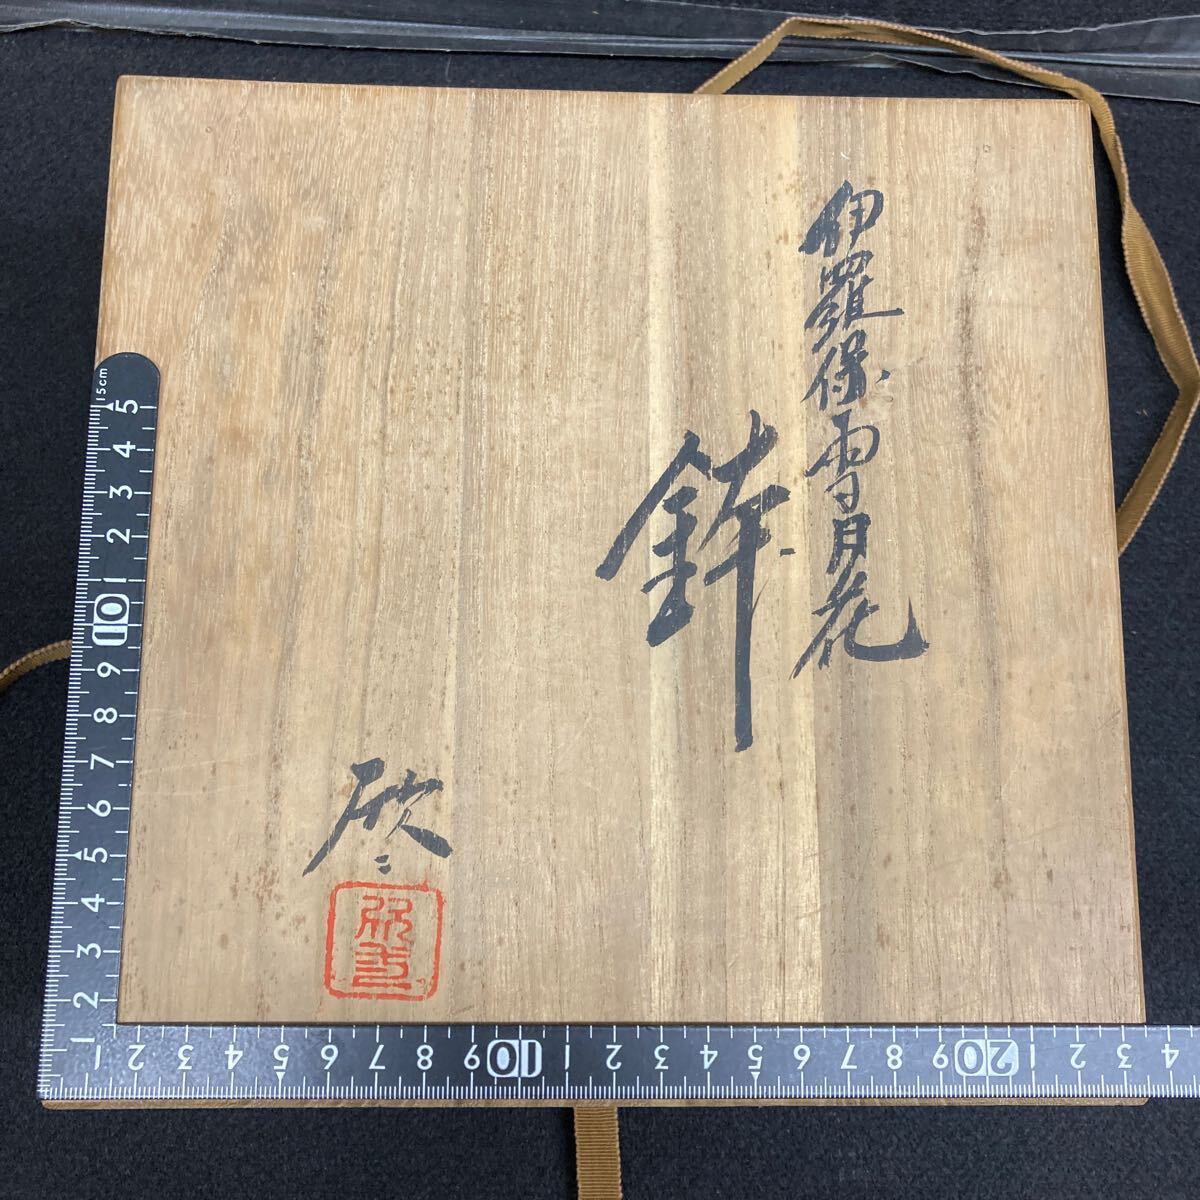 伊羅保雪月花
鉢
欣二
15cm
5
4
3
2
1
10
9
8
7
6
5
4
3
2
1 2 3 4 5 6 7 8 9 10 1 2 3 4 5 6 7 8 9 20 1 2 3 4